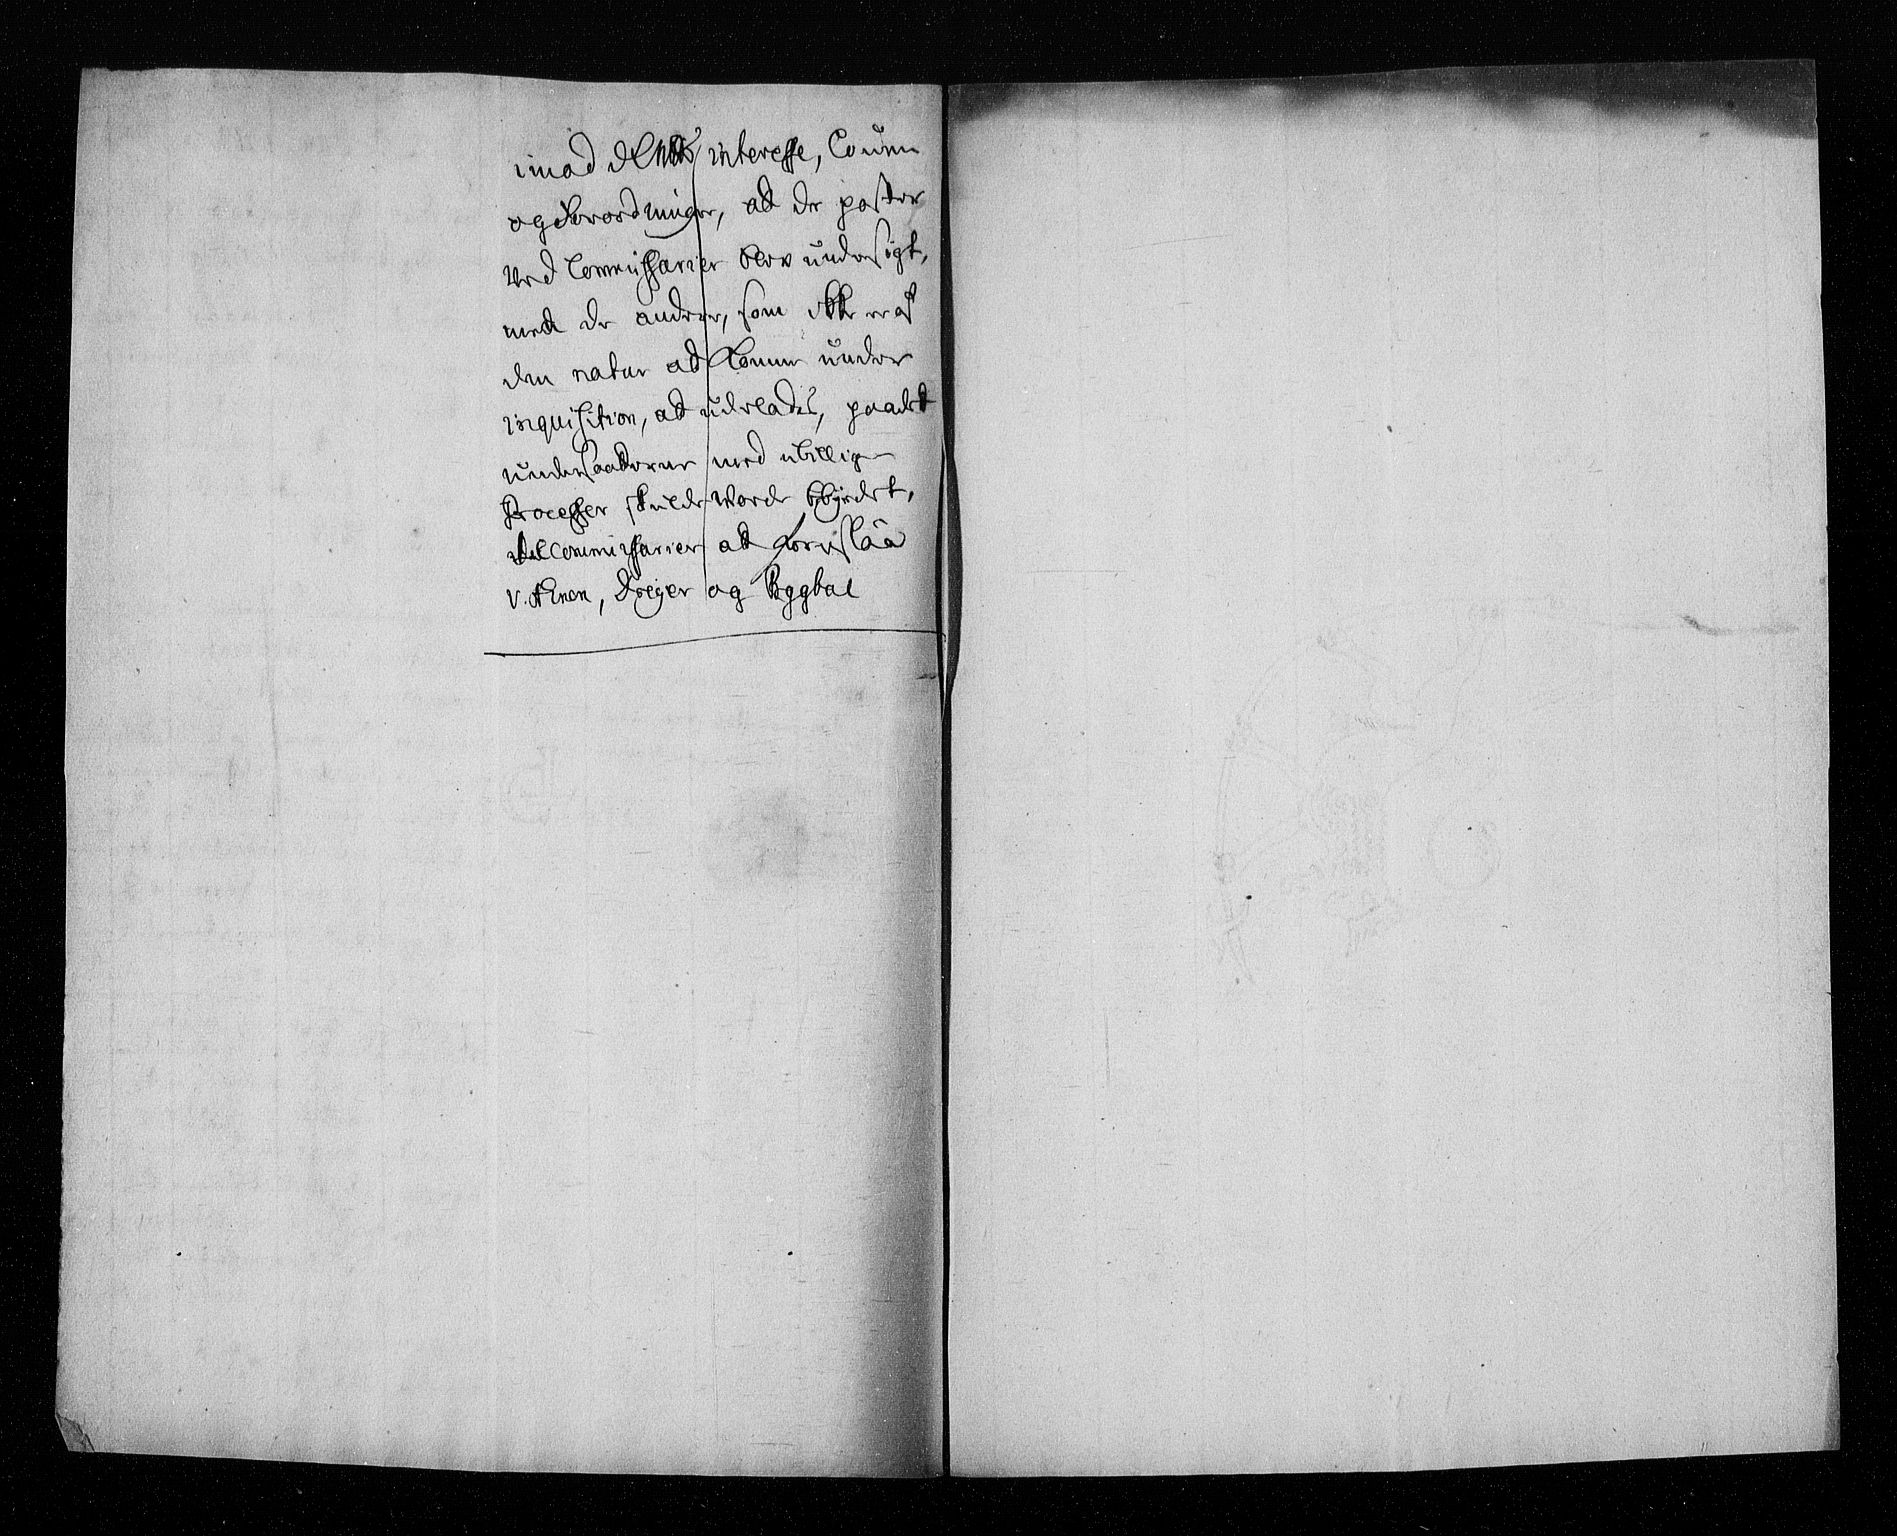 imod D. Mtts interesse, Lowen
og Forordninger, at de poster
ved Commissarier blev undersøgt,
med de andere, som icke er af
den natur at komme under
inquisition, at udelades, paadet
undersaatterne med ubillige
Processer skulde worde bebyrdet,
til Commissarier at forreslaa
v. Ahnen, Dreyer og Byggbal